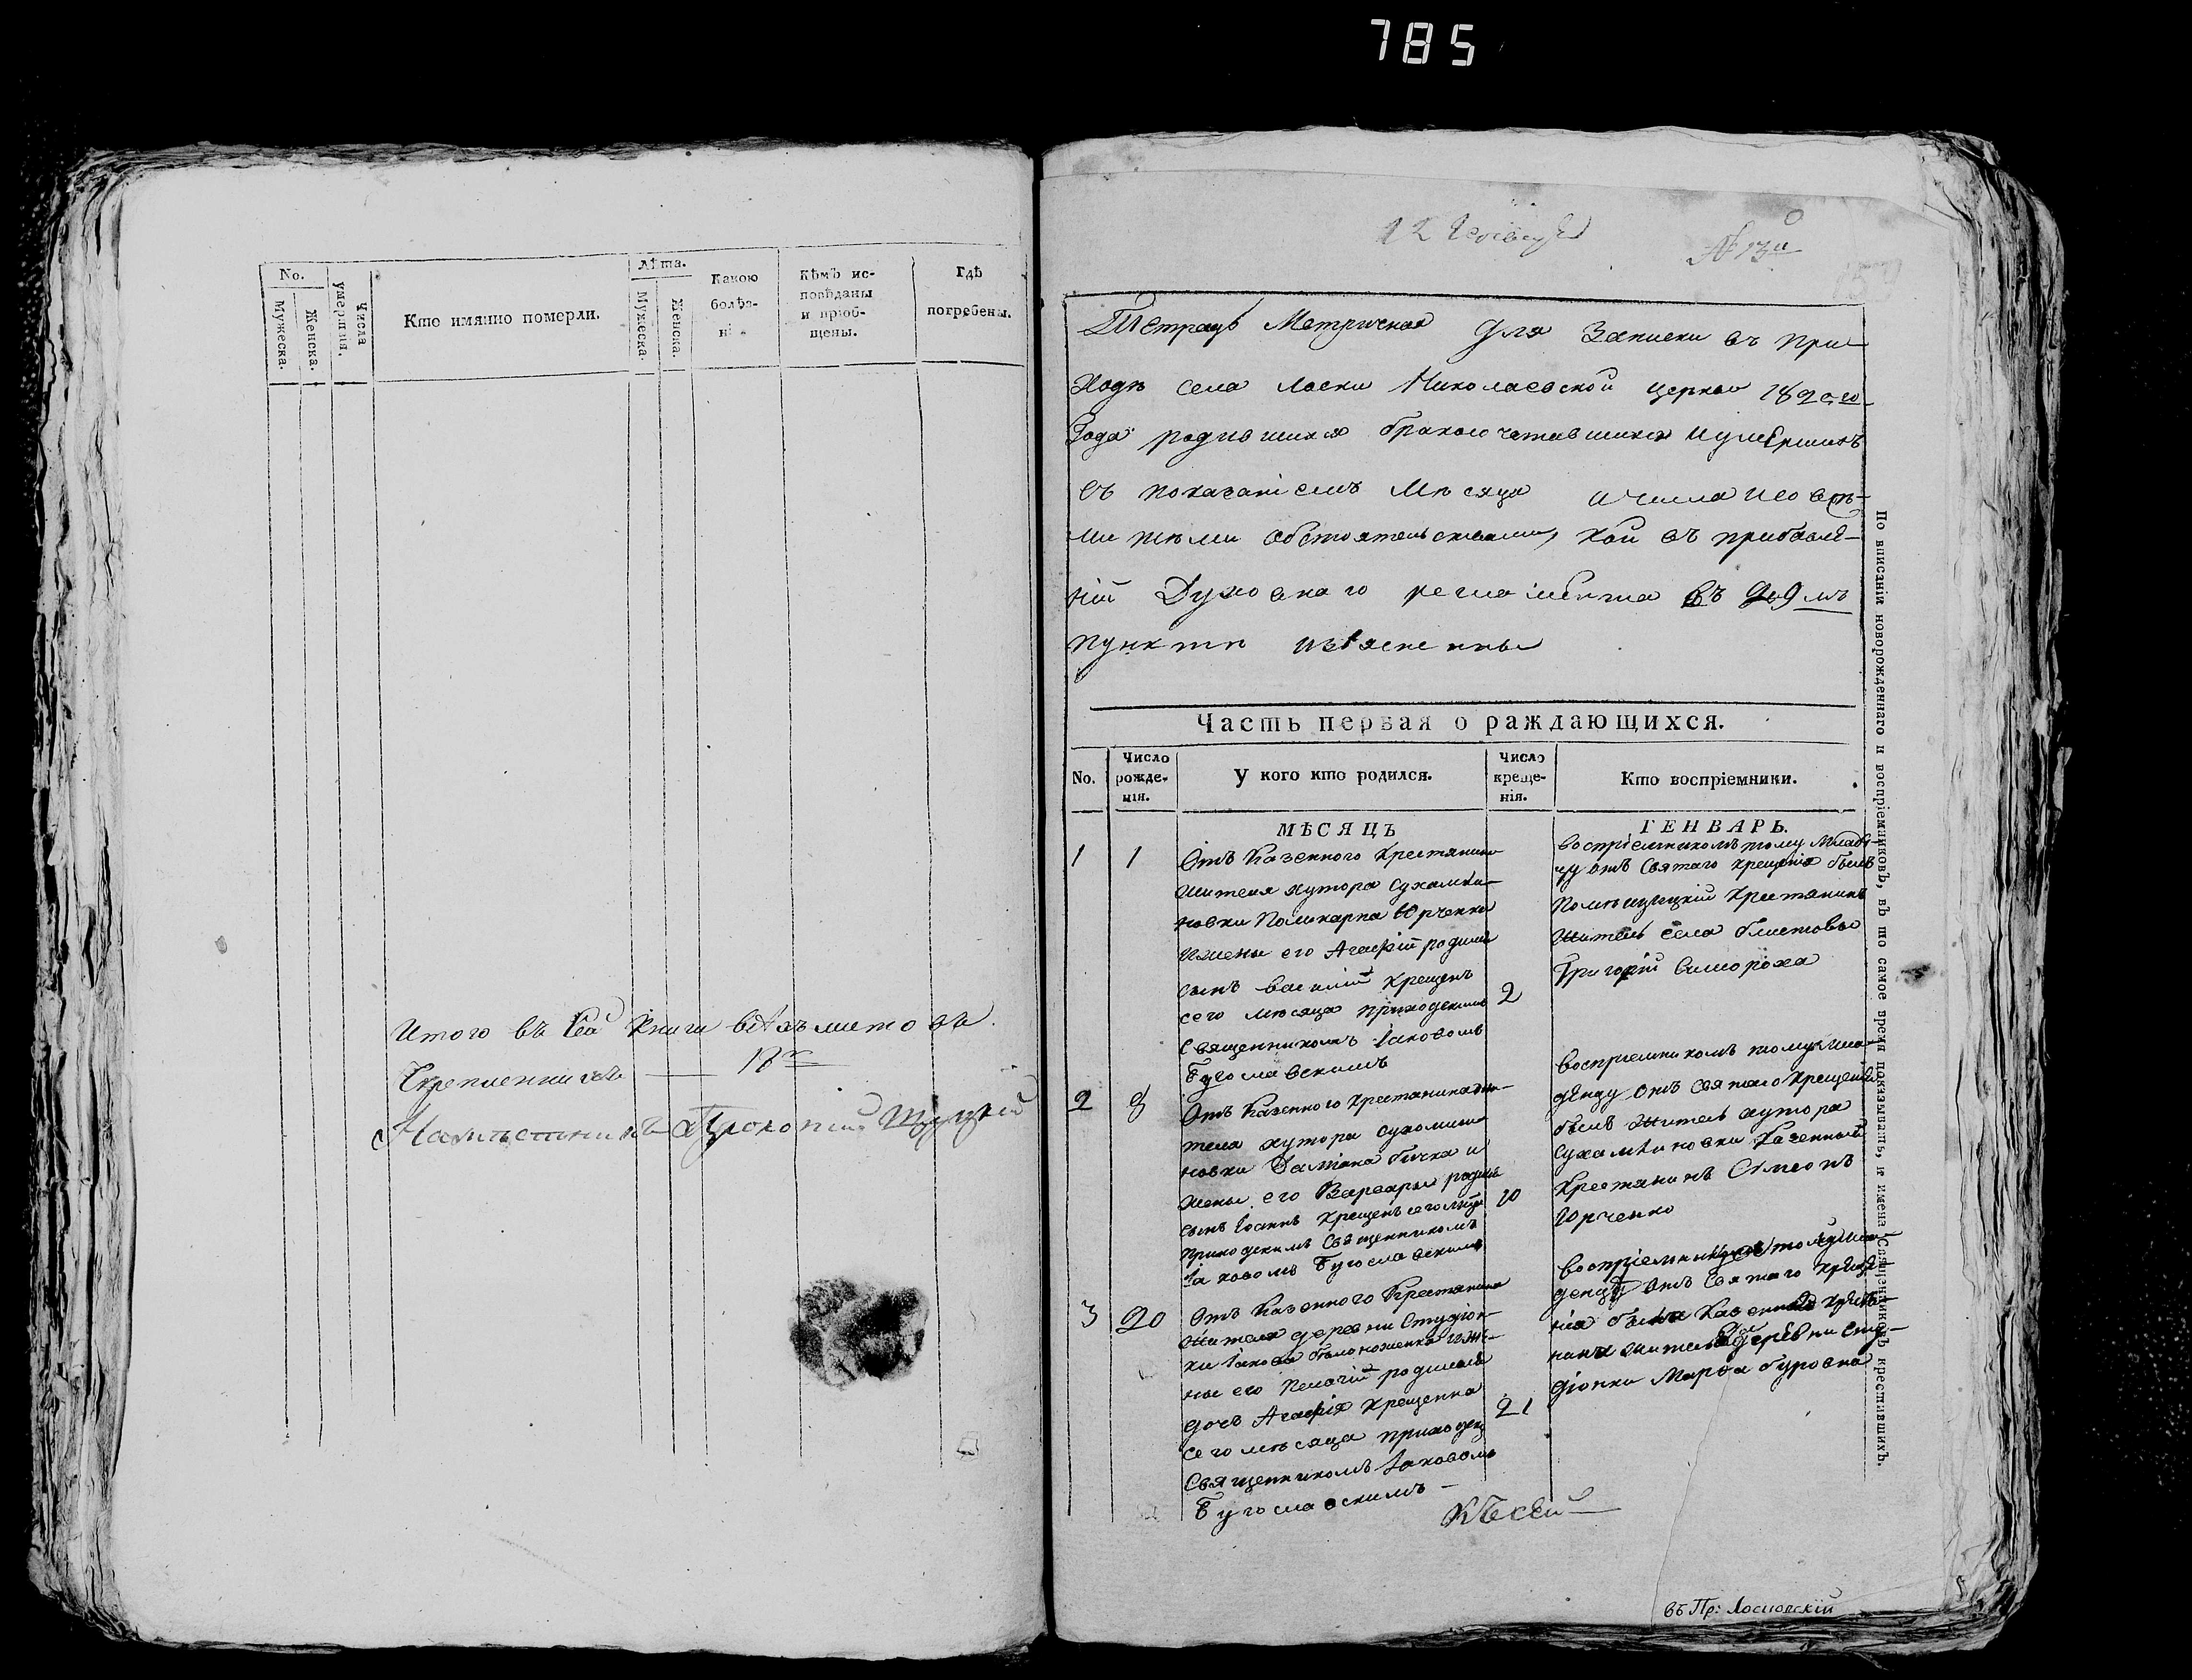 785
No.
Мужеска.
Женска.
Числа умершия.
Кто имянно померли.
лѣта.
Мужеска.
Женска.
Какою болѣз-
ни
Кѣмъ ис-
повѣданы
и приоб-
щены.
Гдѣ
погребены.
Итого въ сей книги листовъ
Скрепленныхъ
Намѣстникъ Прокопій
12
№ 13й
Тетрадь Метричная для Записки въ при-
ходѣ села Ласки Николаевской церкви 1820го
Года родившихся бракосочетавшихся и умершихъ
съ показаніемъ Мѣсяца и числа и со всѣ-
ми тѣми обстоятельствами, кои въ прибавле-
ніи Духовнаго регламента въ 29мъ
пунктѣ изъясненны
Часть первая о раждающихся.
No.
Число
рожде-
нія.
У кого кто родился.
Число
креще-
нія.
Кто воспріемники.
МѢСЯЦЪ
ГЕНВАРЬ.
1
1
Отъ Казенного Крестянина
жителя хутора Сухомли-
новки Поликарпа Юрченка
и жены его Агафіи родился
сынъ Василій Крещенъ
сего мѣсяца приходскимъ
Священникомъ Іаковомъ
Бугославскимъ
2
воспріемникомъ тому Младе-
цу отъ Святаго крещенія былъ
Помѣщицкій Крестянинъ
Житель села Блистовы
Григорій Симороха
2
8
Отъ Казенного Крестянина жи-
теля хутора Сухомли-
новки Даміана Бычка и
жены его Варвары родился
сынъ Іоаннъ Крещенъ сего мѣсяца
приходскимъ Священникомъ
Іаковомъ Бугославскимъ
10
воспріемникомъ тому мла-
денцу отъ Святаго Крещенія
былъ Житель хутора
Сухомлиновки Казенный
Крестянинъ Симеонъ
Юрченко
3
20
Отъ Казенного Крестянина
Жителя деревни Студіон-
ки Іакова Белоноженка и же-
ны его Пелагіи родилась
дочь Агафія Крещенна
сего мѣсяца приходскимъ
Священникомъ Іаковомъ
Бугославскимъ
21
денцу отъ Святаго Креще-
нія была
жителька деревни Сту-
діонки Марфа
По вписаніи новорожденнаго и воспріемниковъ, въ то самое время показывать, и имена Священниковъ крестившихъ.
въ Пр: